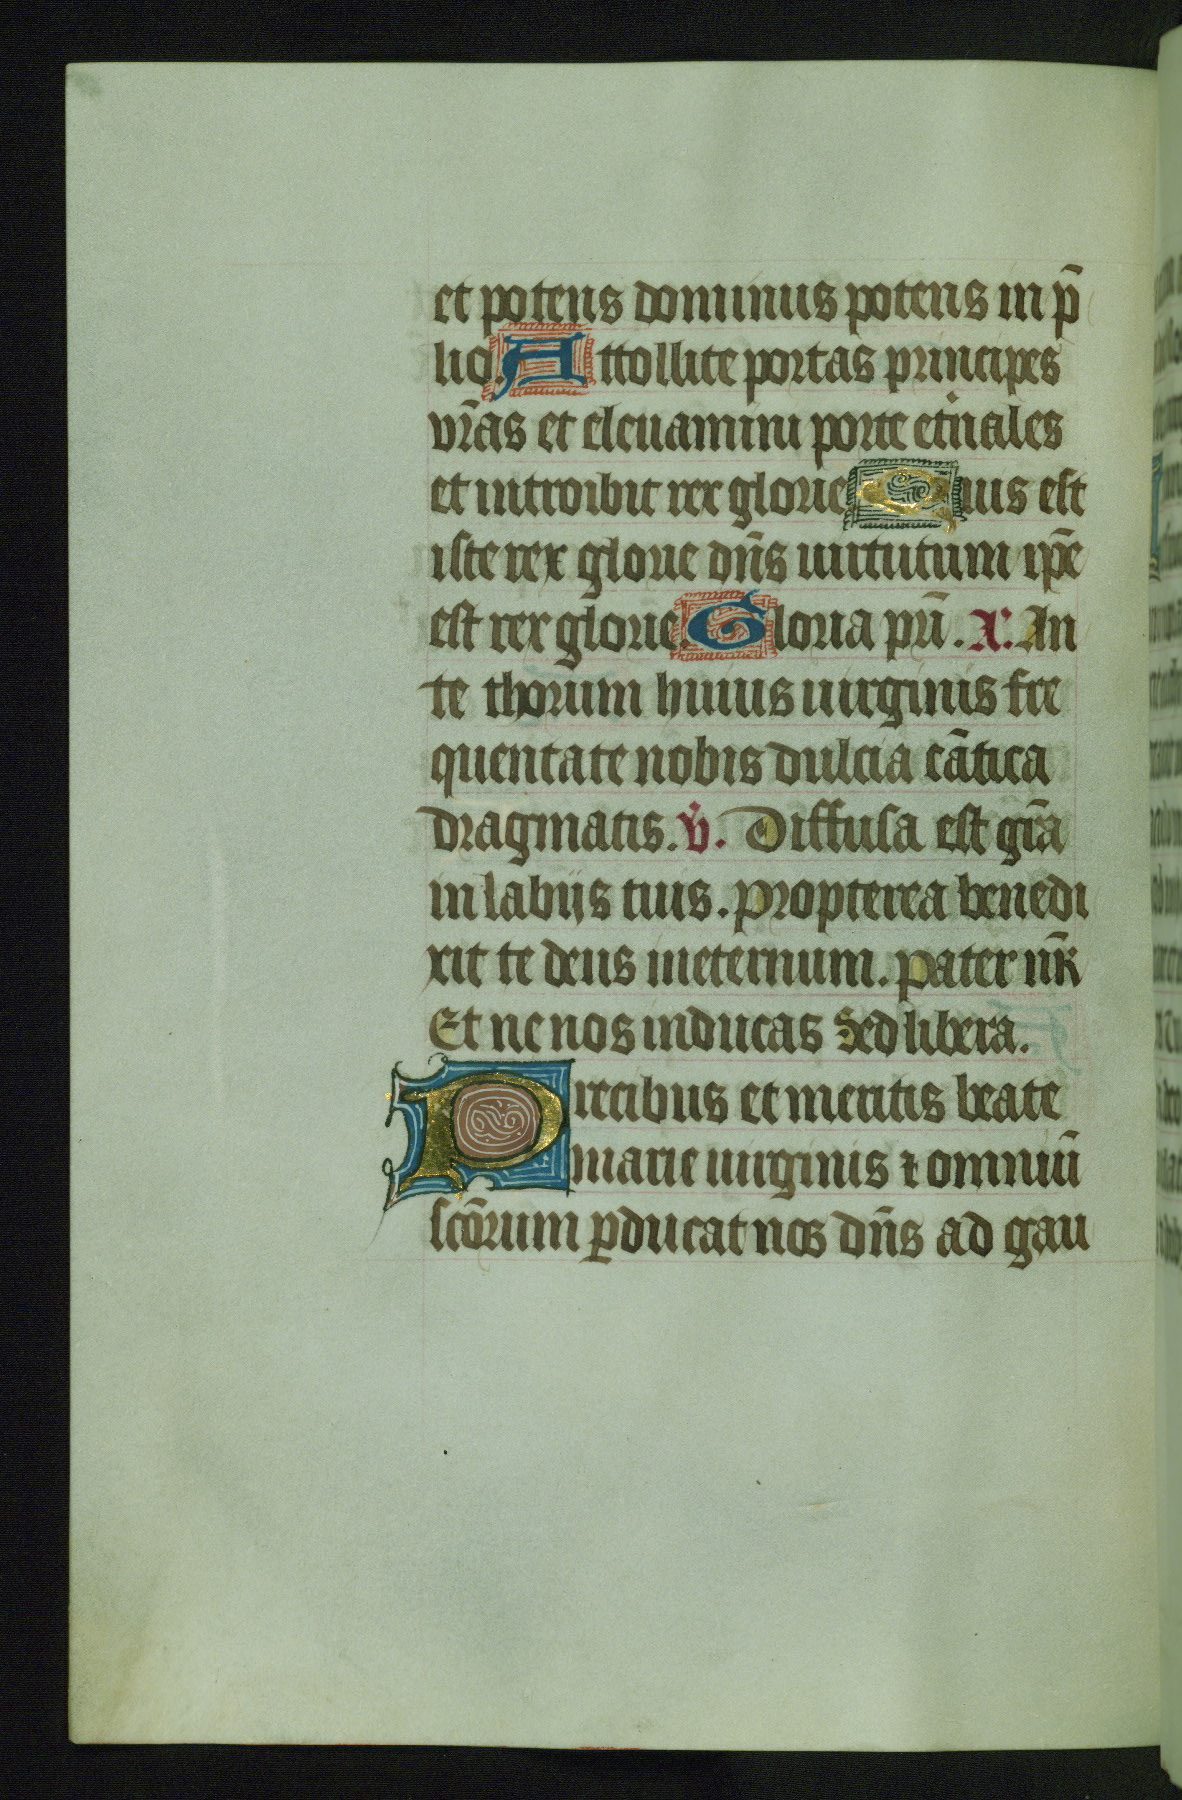 et potens dominus potens in p̄
lio. Attollite portas principes
vr̄as et eleuamini porte et̾nales
et introibit rex glorie Quis est
iste rex glorie dn̄s uirtutum ip̄e
est rex glorie. Gloria pr̄i. A'. An
te thorum huius uirginis fre
quentate nobis dulcia cātica
dragmatis. v̾. Diffusa est gr̄a
in labijs tuis. propterea benedi
xit te deus ineternum. pater nr̄
Et ne nos inducas Sed libera.
Precibus et meritis beate
marie uirginis ⁊ omniū
scōrum ꝑducat nos dn̄s ad gau